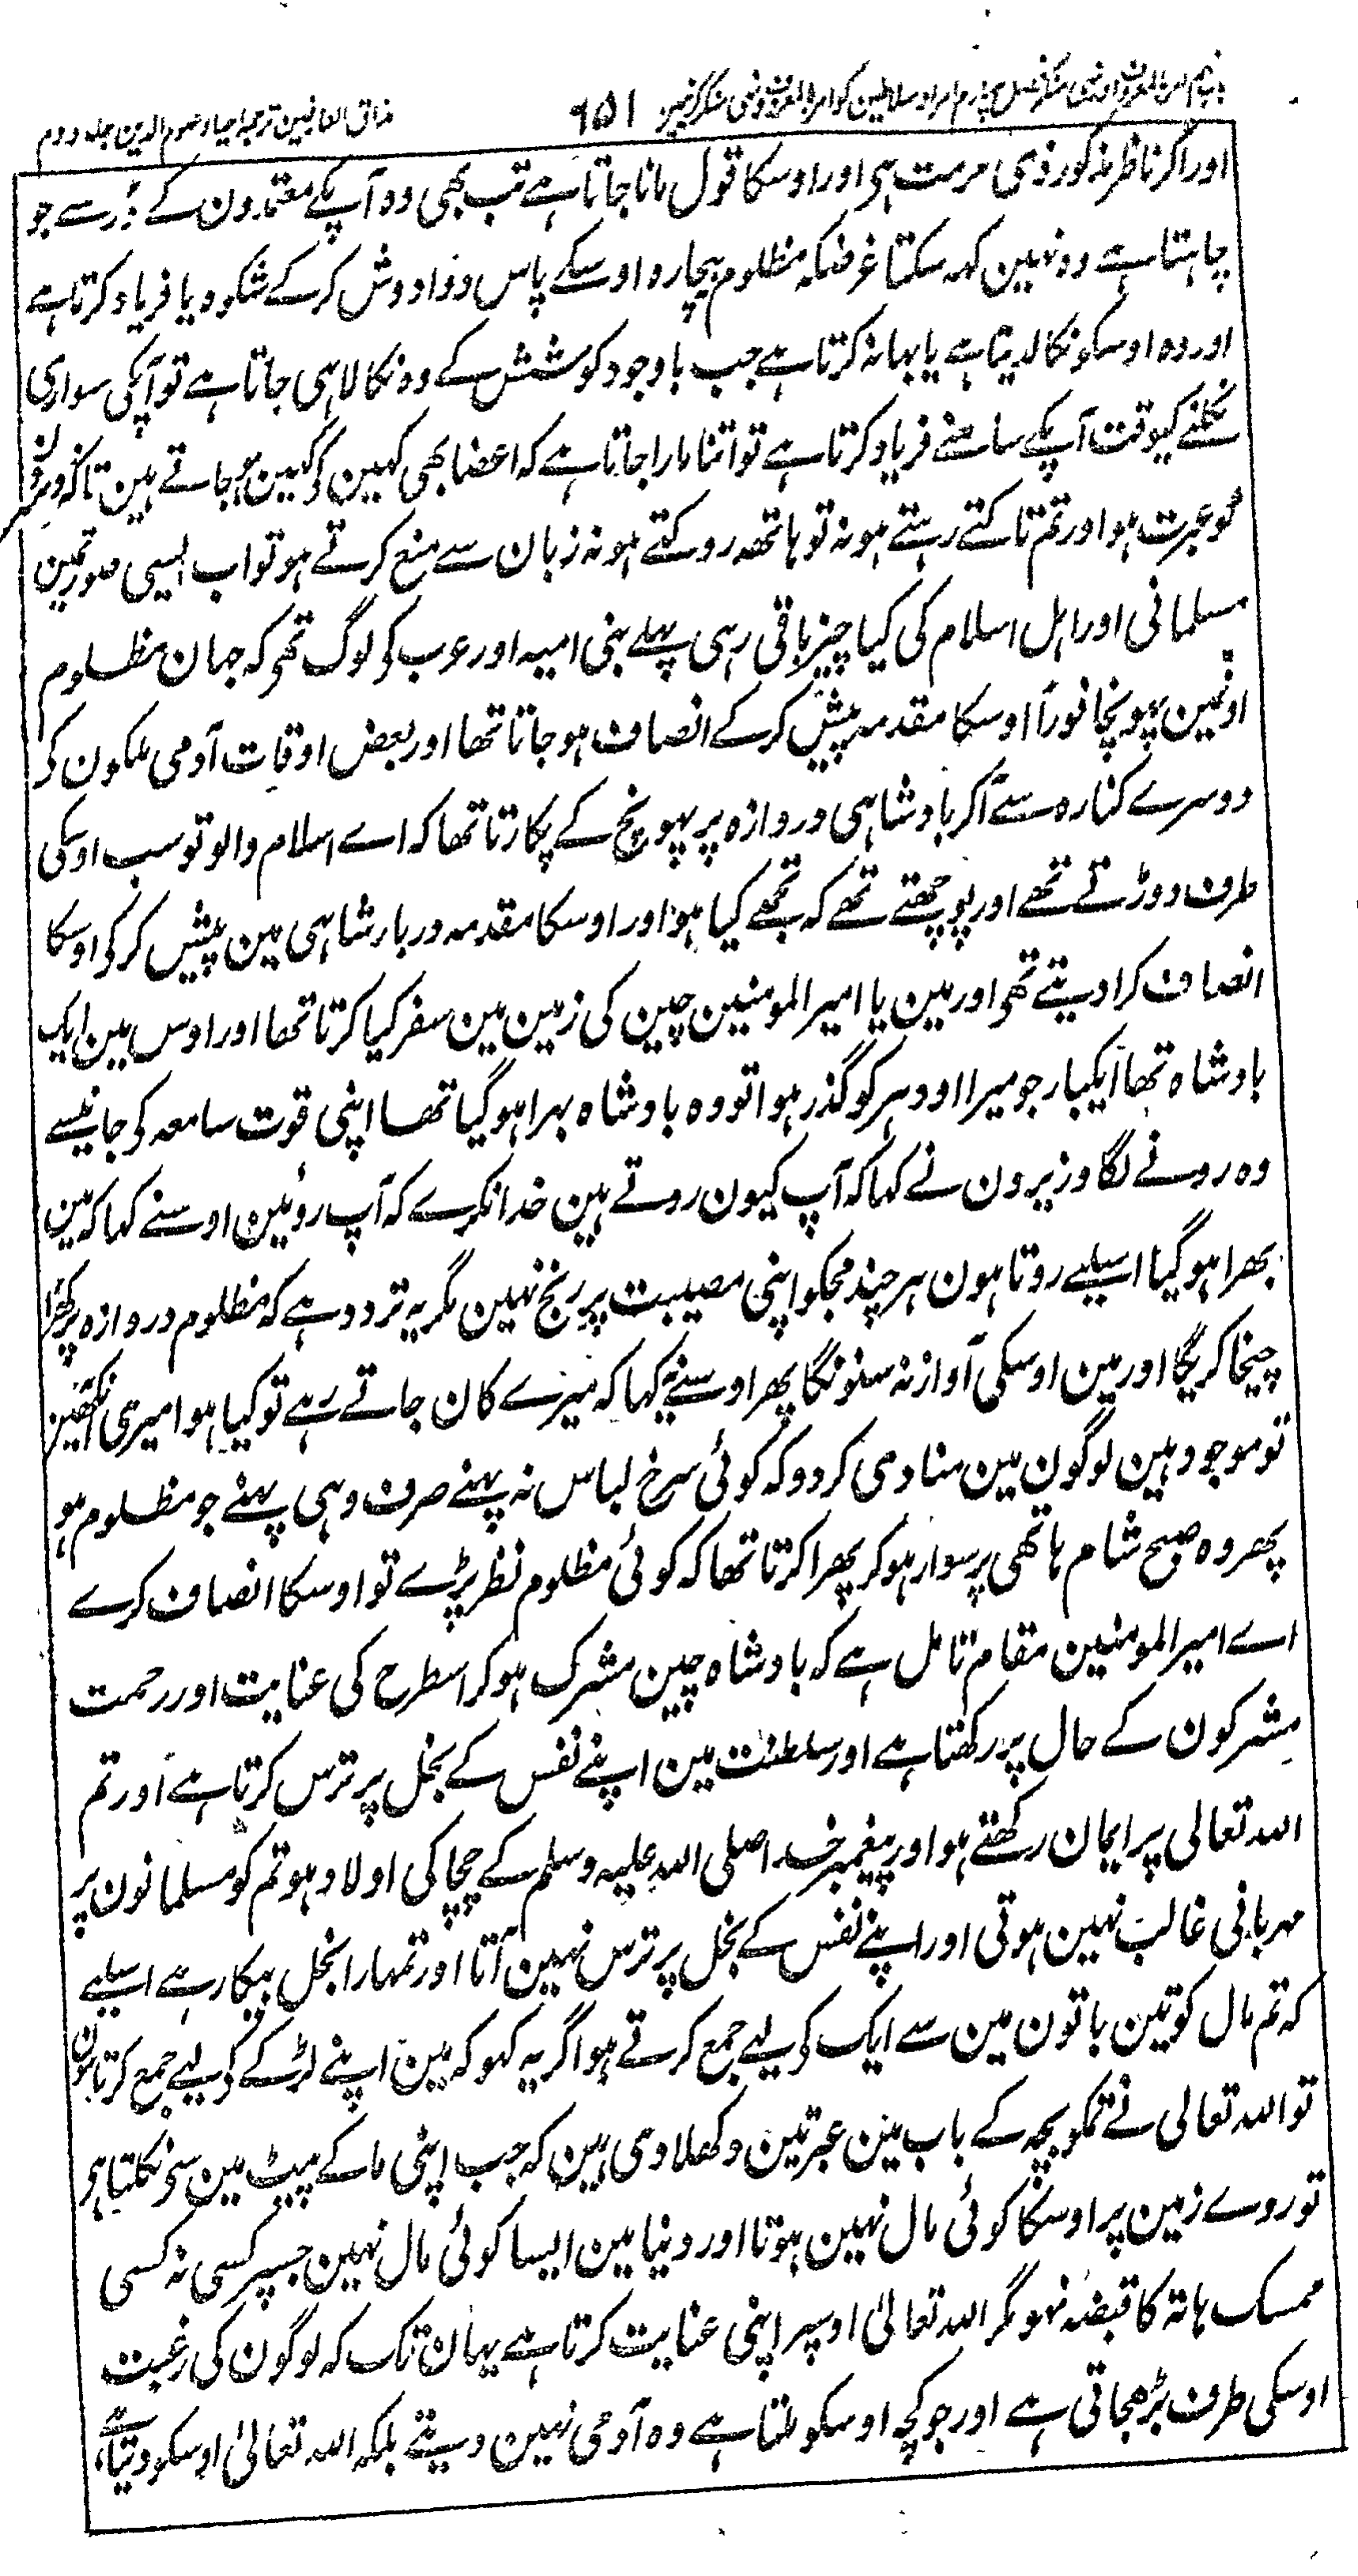 باب نہم امر بالمعروف ونہی منکر فصل چہارم امرا و سلاطین کو امر بالمعروف ونہی منکر کرنیمیں ۶۵۱ مذاق العارفین ترجمہ احیاء علوم الدین جلد دوم
اور اگر ناظر مذکور ذی مرمت ہی اور اوسکا قول مانا جاتا ہے تب بھی وہ آپکے معتمدون کے ڈر سے جو
چاہتا ہے وہ نہین کہہ سکتا غرضکہ مظلوم بیچارہ اوسکے پاس دوادوش کرکے شکوہ یا فریاد کرتا ہے
اور وہ اوسکو نکالدیتا ہے یا بہانہ کرتا ہے جب باوجود کوشش کے وہ نکالا ہی جاتا ہے تو آپکی سواری
نکلنے کیوقت آپکے سامنے فریاد کرتا ہے تو اتنا مارا جاتا ہے کہ اعضا بھی کہین کے کہین ہوجاتے ہین تاکہ دوسرونکو
عبرت ہو اور تم تاکتے رہتے ہو نہ تو ہاتھہ روکتے ہو نہ زبان سے منع کرتے ہو تو اب ایسی صورتمین
مسلمانی اور اہل اسلام کی کیا چیز باقی رہی پہلے بنی امیہ اور عرب کو لوگ تھی کہ جہان مظلوم
اونمین پہونچا فوراً اوسکا مقدمہ پیش کرکے انصاف ہوجاتا تھا اور بعض اوقات آدمی ملکون کی
دوسرے کنارہ سے آکر بادشاہی دروازہ پر پہونچ کے پکارتا تھا کہ اے اسلام والو تو سب اوسکی
طرف دوڑتے تھے اور پوچھتے تھے کہ تجھے کیا ہوا اور اوسکا مقدمہ دربار شاہی مین پیش کرکی اوسکا
انصاف کرادیتے تھی اور مین یا امیرالمومنین چین کی زمین مین سفر کیا کرتا تھا اور اوس مین ایک
بادشاہ تھا ایکبار جو میرا اودہر کو گذر ہوا تو وہ بادشاہ بہرا ہوگیا تھا اپنی قوت سامعہ کی جانیسے
وہ رونے لگا وزیرون نے کہا کہ آپ کیون روتے ہین خدا نکرے کہ آپ روئین اوسنے کہا کہ مین
بھرا ہوگیا اسیلیے روتا ہون ہر چند مجکو اپنی مصیبت پر رنج نہین مگر یہ تردد ہے کہ مظلوم دروازہ پر کھڑا
چیخا کریگا اور مین اوسکی آواز نہ سنونگا پھر اوسنے یہ کہا کہ میرے کان جاتے رہے تو کیا ہوا میری آنکھین
تو موجود ہین لوگون مین منادی کردو کہ کوئی سرخ لباس نہ پہنے صرف وہی پہنے جو مظلوم ہو
پھر وہ صبح شام ہاتھی پر سوار ہوکر پھرا کرتا تھا کہ کوئی مظلوم نظر پڑے تو اوسکا انصاف کرے
اے امیرالمومنین مقام تامل ہے کہ بادشاہ چین مشرک ہوکر اسطرح کی عنایت اور رحمت
مشرکون کے حال پر رکھتا ہے اور سلطنت مین اپنے نفس کے بخل پر ترس کرتا ہے اور تم
اللہ تعالی پر ایمان رکھتے ہو اور پیغمبر خدا صلی اللہ علیہ وسلم کے چچا کی اولاد ہو تم کو مسلمانون پر
مہربانی غالب نہین ہوتی اور اپنے نفس کے بخل پر ترس نہین آتا اور تمہارا بخل بیکار ہے اسیلیے
کہ تم مال کو تین باتون مین سے ایک کی لیے جمع کرتے ہو اگر یہ کہو کہ مین اپنے لڑکے کی لیے جمع کرتا ہون
تو اللہ تعالی نے تمکو بچہ کے باب مین عبرتین دکھلا دی ہین کہ جب اپنی ما کے پیٹ مین سی نکلتا ہی
تو روے زمین پر اوسکا کوئی مال نہین ہوتا اور دنیا مین ایسا کوئی مال نہین جسپر کسی نہ کسی
ممسک ہاتہ کا قبضہ نہو مگر اللہ تعالی اوسپر اپنی عنایت کرتا ہے یہان تک کہ لوگون کی رغبت
اوسکی طرف بڑھجاتی ہے اور جو کچہ اوسکو ملتا ہے وہ آدمی نہین دیتے بلکہ اللہ تعالی اوسکو دیتا ہے